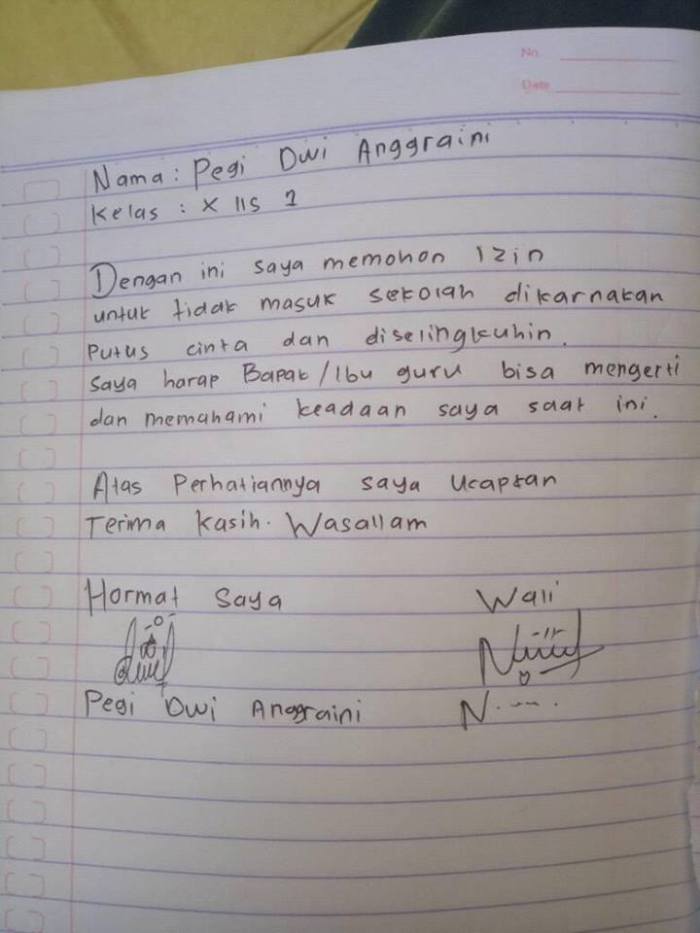 No.
Date
Nama : Pegi Dwi Anggraini
Kelas : X IIS 1
Dengan ini saya memohon izin
untuk tidak masuk sekolah dikarnakan
Putus cinta dan diselingkuhin.
Saya harap Bapak/Ibu guru bisa mengerti
dan memahami keadaan saya saat ini.
Atas Perhatiannya saya Ucapkan
Terima Kasih. Wasallam
Hormat Saya Wali
Pegi Dwi Anggraini N.....